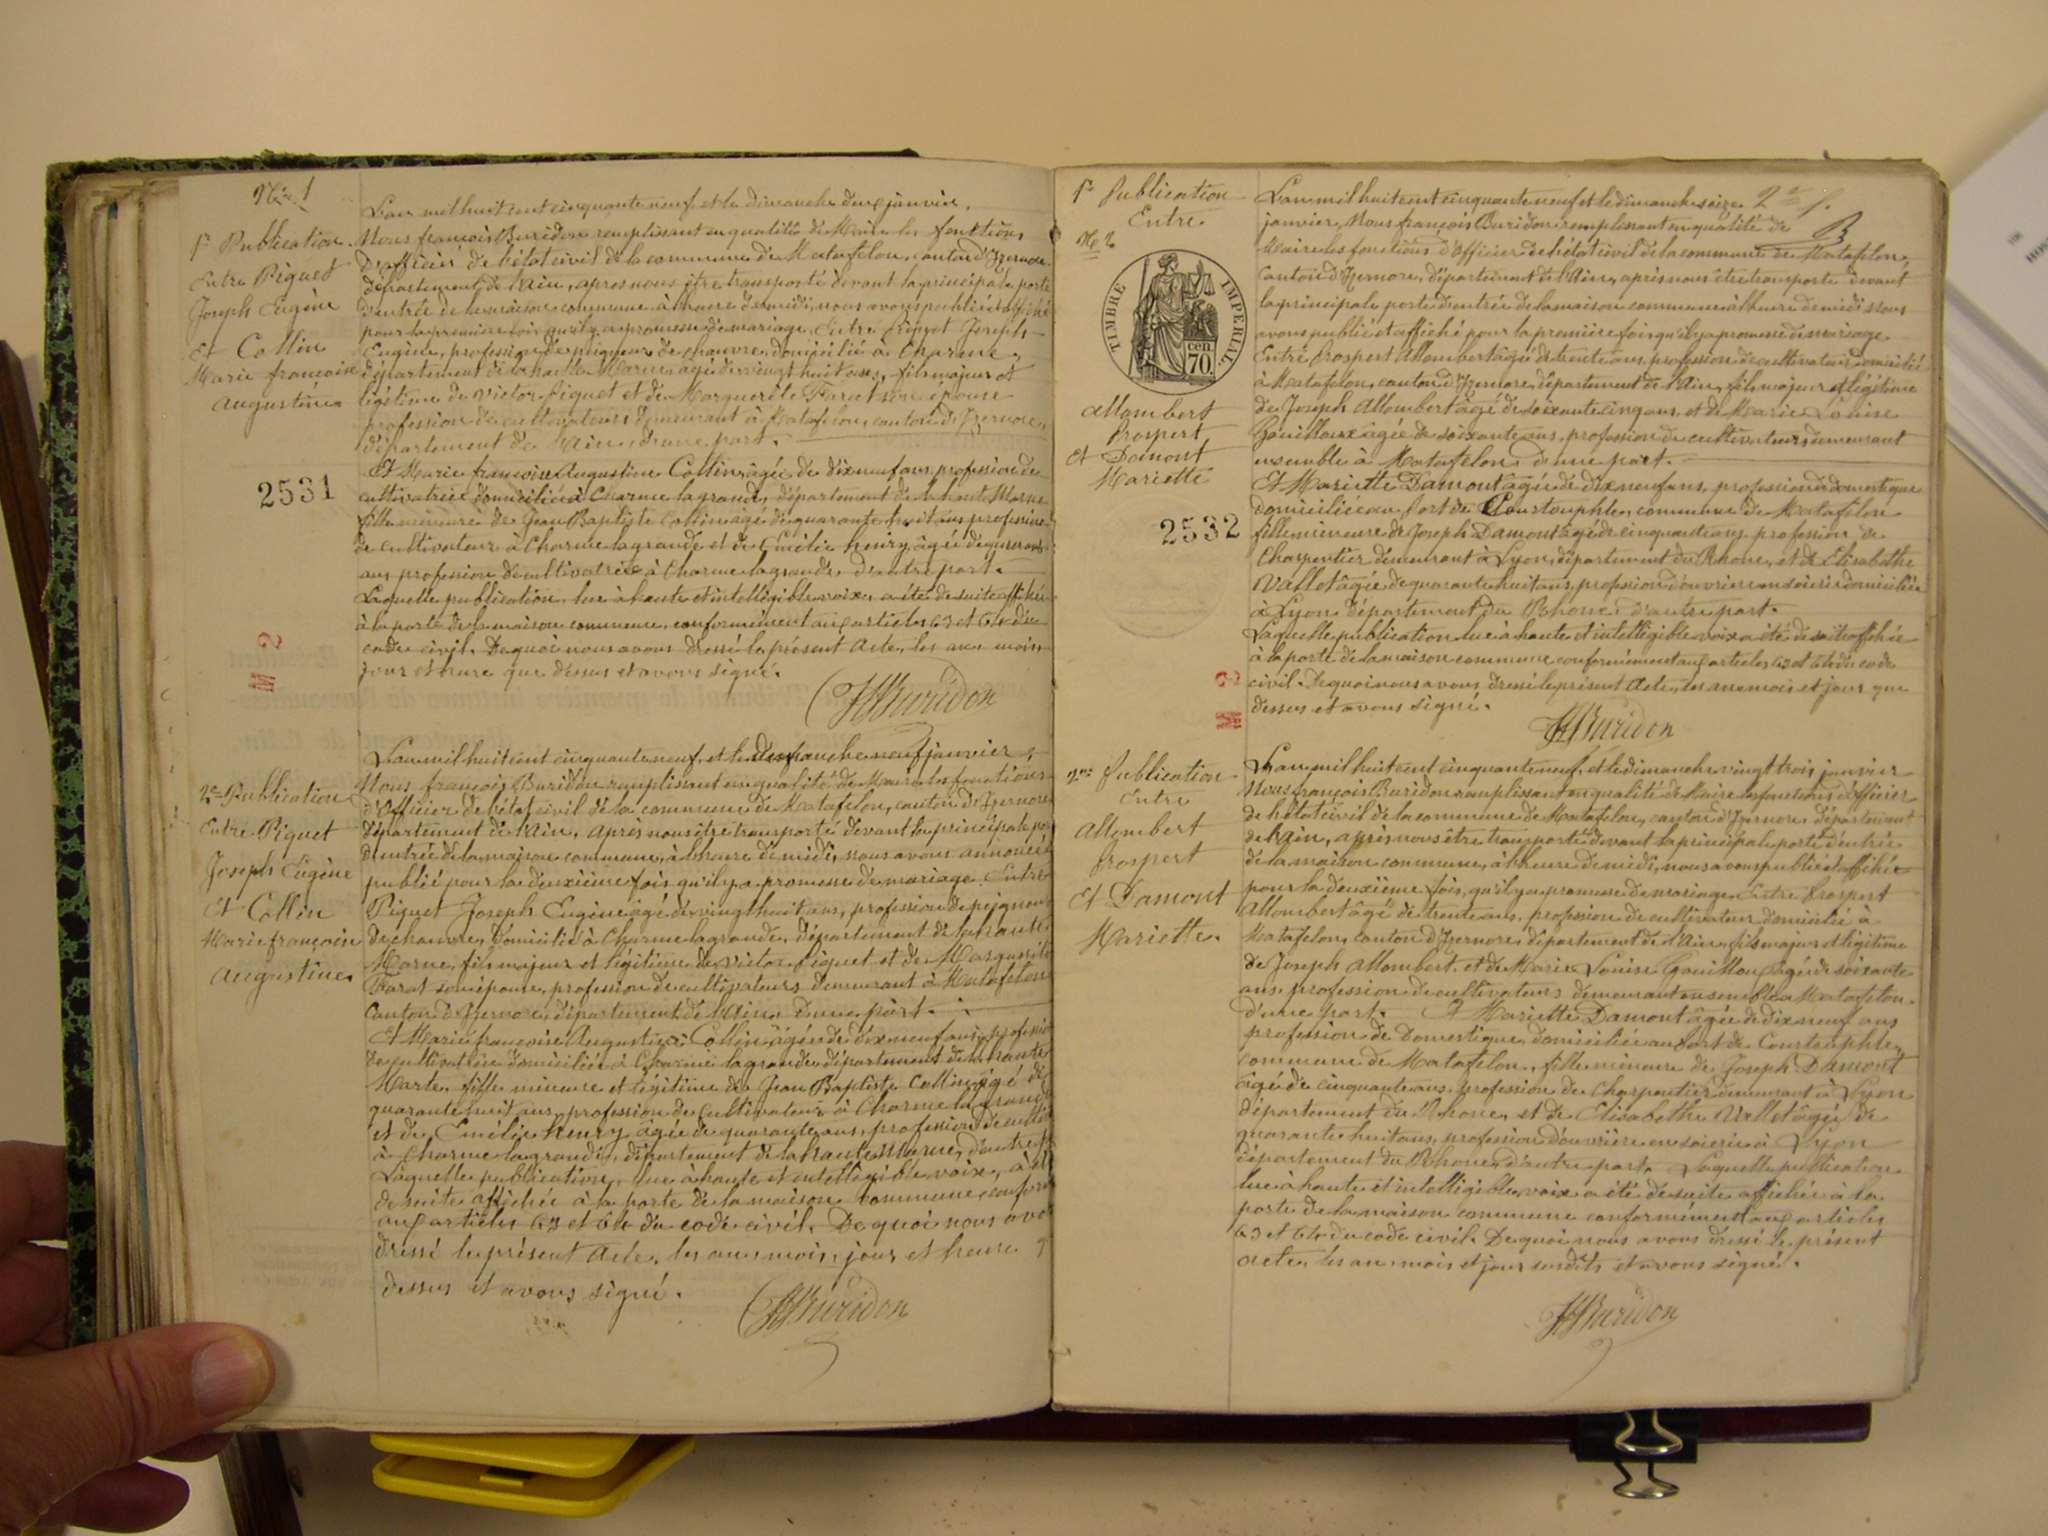 N° 1
1re Publication
Entre Piguet
Joseph Eugène
Et Collin
Marie françoise
Augustine
2531
L'an mil huit cent cinquante neuf et le dimanche deux janvier,
Nous françois Buridon remplissant en qualité de Maire les fonctions
d'officier de l'état civil de la commune de Matafelon, canton d'Izernore
département de l'Ain, après nous être transporté devant la principale porte
d'entrée de la maison commune à l'heure de midi, nous avons publié et affiché
pour la première fois qu'il y a promesse de mariage Entre Piguet Joseph
Eugène, profession de peigneur de chanvre, domicilié à Charme,
département de la haute Marne, âgé de vingt huit ans, fils majeur et
légitime de Victor Piguet et de Marguerite Farat son épouse
profession de cultivateurs demeurant à Matafelon, canton d'Izernore,
département de l'Ain, d'une part.
Et Marie françoise Augustine Collin âgée de dix neuf ans profession de
cultivatrice domiciliée à Charme la grande, département de la haute Marne
fille mineure de Jean Baptiste Collin âgé de quarante huit ans profession
de cultivateur à Charme la grande et de Emélie henry âgée de quarante
ans profession de cultivatrice à Charme la grande, d'autre part.
Laquelle publication, lue à haute et intelligible voix, a été de suite affichée
à la porte de la maison commune, conformément aux articles 63 et 64 du
code civil. De quoi nous avons dressé le présent Acte, les an, mois,
jour et heure que dessus et avons signé.
Buridon
2me Publication
Entre Piguet
Joseph Eugène
Et Collin
Marie françoise
Augustine
L'an mil huit cent cinquante neuf, et le dimanche neuf janvier,
Nous françois Buridon remplissant en qualité de Maire les fonctions
d'Officier de l'état civil de la commune de Matafelon, canton d'Izernore
département de l'Ain, après nous être transporté devant la principale por
d'entrée de la maison commune, à l'heure de midi, nous avons annoncé
publié pour la deuxième fois qu'il y a promesse de mariage Entre
Piguet Joseph Eugène âgé de vingt huit ans, profession de peigneur
de chanvre, Domicilié à Charme la grande, département de la haute
Marne, fils majeur et légitime de Victor Piguet et de Marguerite
Farat son épouse, profession de cultivateurs demeurant à Matafelon
Canton d'Izernore, département de l'Ain, D'une part.
Et Marie françoise Augustine Collin âgée de dix neuf ans, professio
de cultivatrice domiciliée à Charme la grande, département de la haute
Marne, fille mineure et légitime de Jean Baptiste Collin âgé de
quarante huit ans, profession de cultivateur à Charme la grande
et de Emélie henry âgée de quarante ans, profession de culti
à Charme la grande, département de la haute Marne, d'autre p
Laquelle publication, lue à haute et intelligible voix, a ét
de suite affichée à la porte de la maison commune, confor
aux articles 63 et 64 du code civil. De quoi nous avo
dressé le présent Acte, les an, mois, jour et heure q
dessus et avons signé.
Buridon
1re Publication
Entre
N° 2
TIMBRE IMPERIAL
70 cen
Allombert
Prospert
Et Damont
Mariette
2532
L'an mil huit cent cinquante neuf et le dimanche seize
janvier, Nous françois Buridon remplissant en qualité de
Maire les fonctions d'Officier de l'état civil de la commune de Matafelon,
Canton d'Izernore, département de l'Ain, après nous être transporté devant
la principale porte d'entrée de la maison commune à l'heure de midi nous
avons publié et affiché pour la première fois qu'il y a promesse de mariage
Entre Prospert Allombert âgé de trente ans, profession de cultivateur domicilié
à Matafelon, canton d'Izernore, département de l'Ain, fils majeur et légitime
de Joseph Allombert âgé de soixante cinq ans, et de Marie Louise
Gouilloux âgée de soixante ans, profession de cultivateurs, demeurant
ensemble à Matafelon, d'une part.
Et Mariette Damont âgée de dix neuf ans, profession de domestique
domiciliée au port de Courtouphle, commune de Matafelon
fille mineure de Joseph Damont âgé de cinquante ans profession de
Charpentier demeurant à Lyon, département du Rhone, et de Elisabethe
Vallet âgée de quarante huit ans, profession d'ouvrière en soierie domiciliée
à Lyon département du Rhone, d'autre part.
Laquelle publication lue à haute et intelligible voix a été de suite affichée
à la porte de la maison commune conformément aux articles 63 et 64 du code
civil. De quoi nous avons dressé le présent Acte, les an mois et jour que
dessus et avons signé.
Buridon
2me Publication
Entre
Allombert
Prospert
Et Damont
Mariette.
L'an mil huit cent cinquante neuf, et le dimanche vingt trois janvier
Nous françois Buridon remplissant en qualité de Maire les fonctions d'officier
de l'état civil de la commune de Matafelon, canton d'Izernore, département
de l'Ain, après nous être transporté devant la principale porte d'entrée
de la maison commune, à l'heure de midi, nous avons publié et affiché
pour la deuxième fois, qu'il y a promesse de mariage, Entre Prospert
Allombert âgé de trente ans, profession de cultivateur domicilié à
Matafelon, canton d'Izernore, département de l'Ain, fils majeur et légitime
de Joseph Allombert et de Marie Louise Gouilloux âgée de soixante
ans, profession de cultivateurs demeurant ensemble à Matafelon.
d'une part. Et Mariette Damont âgée de dix neuf ans
profession de Domestique, domiciliée au port de Courtouphle,
commune de Matafelon, fille mineure de Joseph Damont
âgé de cinquante ans profession de Charpentier demeurant à Lyon
département du Rhone, et de Elisabethe Vallet âgée de
quarante huit ans, profession d'ouvrière en soierie à Lyon
département du Rhone, d'autre part. Laquelle publication
lue à haute et intelligible voix a été de suite affichée à la
porte de la maison commune conformément aux articles
63 et 64 du code civil. De quoi nous avons dressé le présent
acte, les an, mois et jour susdits et avons signé.
Buridon